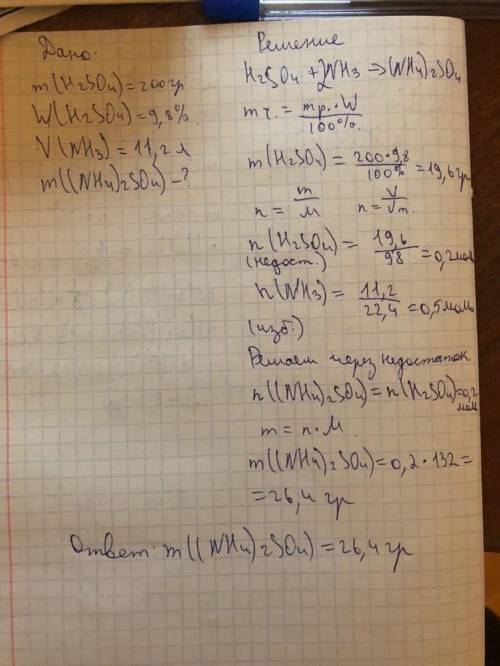 Дано:
m(H2SO4)=200гр
W(H2SO4)=9,8%
V(NH3)=11,2л
m((NH4)2SO4)-?
Решение
H2SO4+2NH3→(NH4)2SO4
m ч.= mр.·W / 100%
m(H2SO4)= 200·9,8 / 100% =19,6гр
n= m / M n= V / Vm.
n(H2SO4)= 19,6 / 98 =0,2мол
(недост.)
n(NH3)= 11,2 / 22,4 =0,5моль
(изб.)
Решаем через недостаток.
n((NH4)2SO4)=n(H2SO4)=0,2 мол
m=n·M.
m((NH4)2SO4)=0,2·132=
=26,4 гр
Ответ: m((NH4)2SO4)=26,4 гр